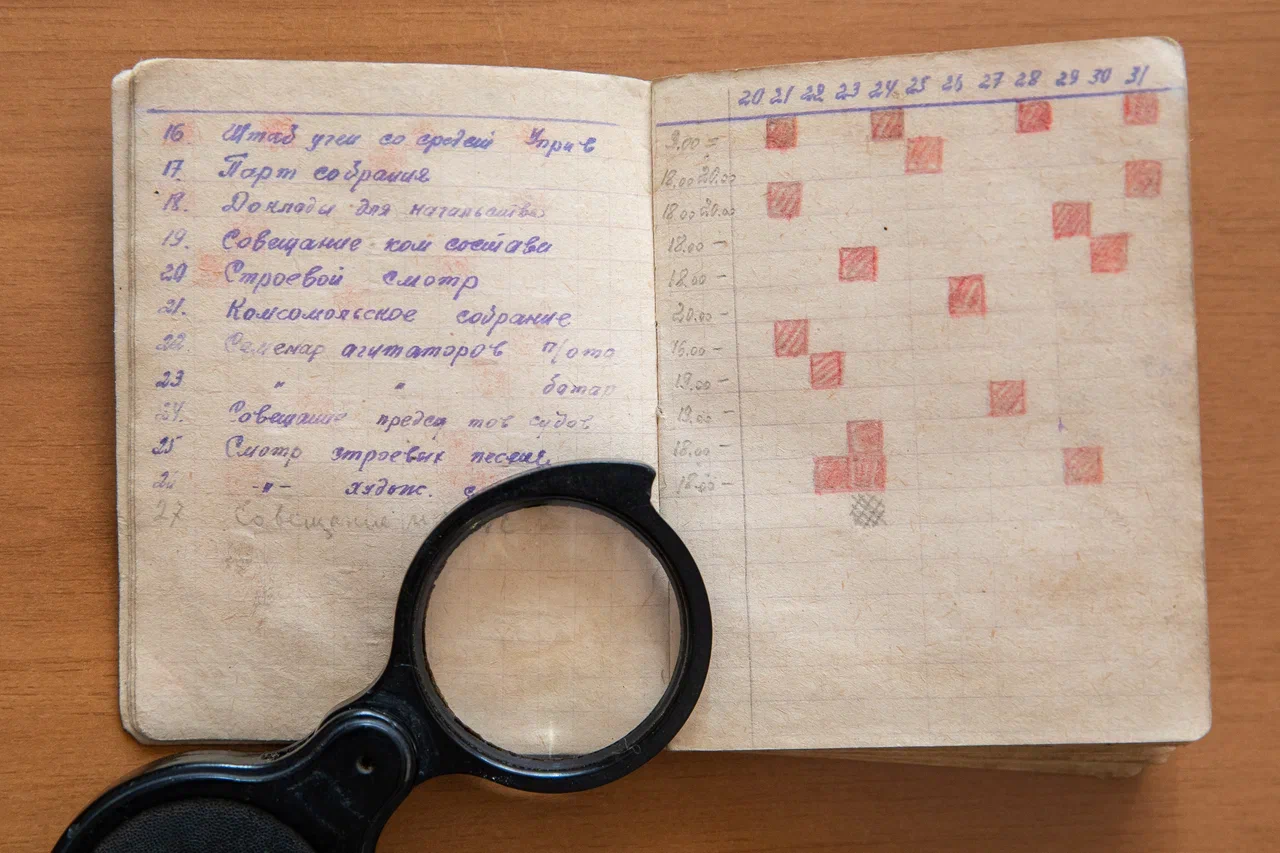 16 Штаб учен со средст Упр-в
17. Парт собрания
18. Доклады для начальства
19. Совещание ком состава
20 Строевой смотр
21. Комсомольское собрание
22. Семенар агитаторов п/ото
23 " " батар
24. Совещание предст тов судов
25 Смотр строевых песней
26 -"- худож. с
27 Совещание
20 21 22 23 24 25 26 27 28 29 30 31
9.00 =
18.00 20.00
18.00 20.00
18.00 -
18.00 -
20.00 -
16.00 -
19.00 -
19.00 -
18.00 -
18.00 -